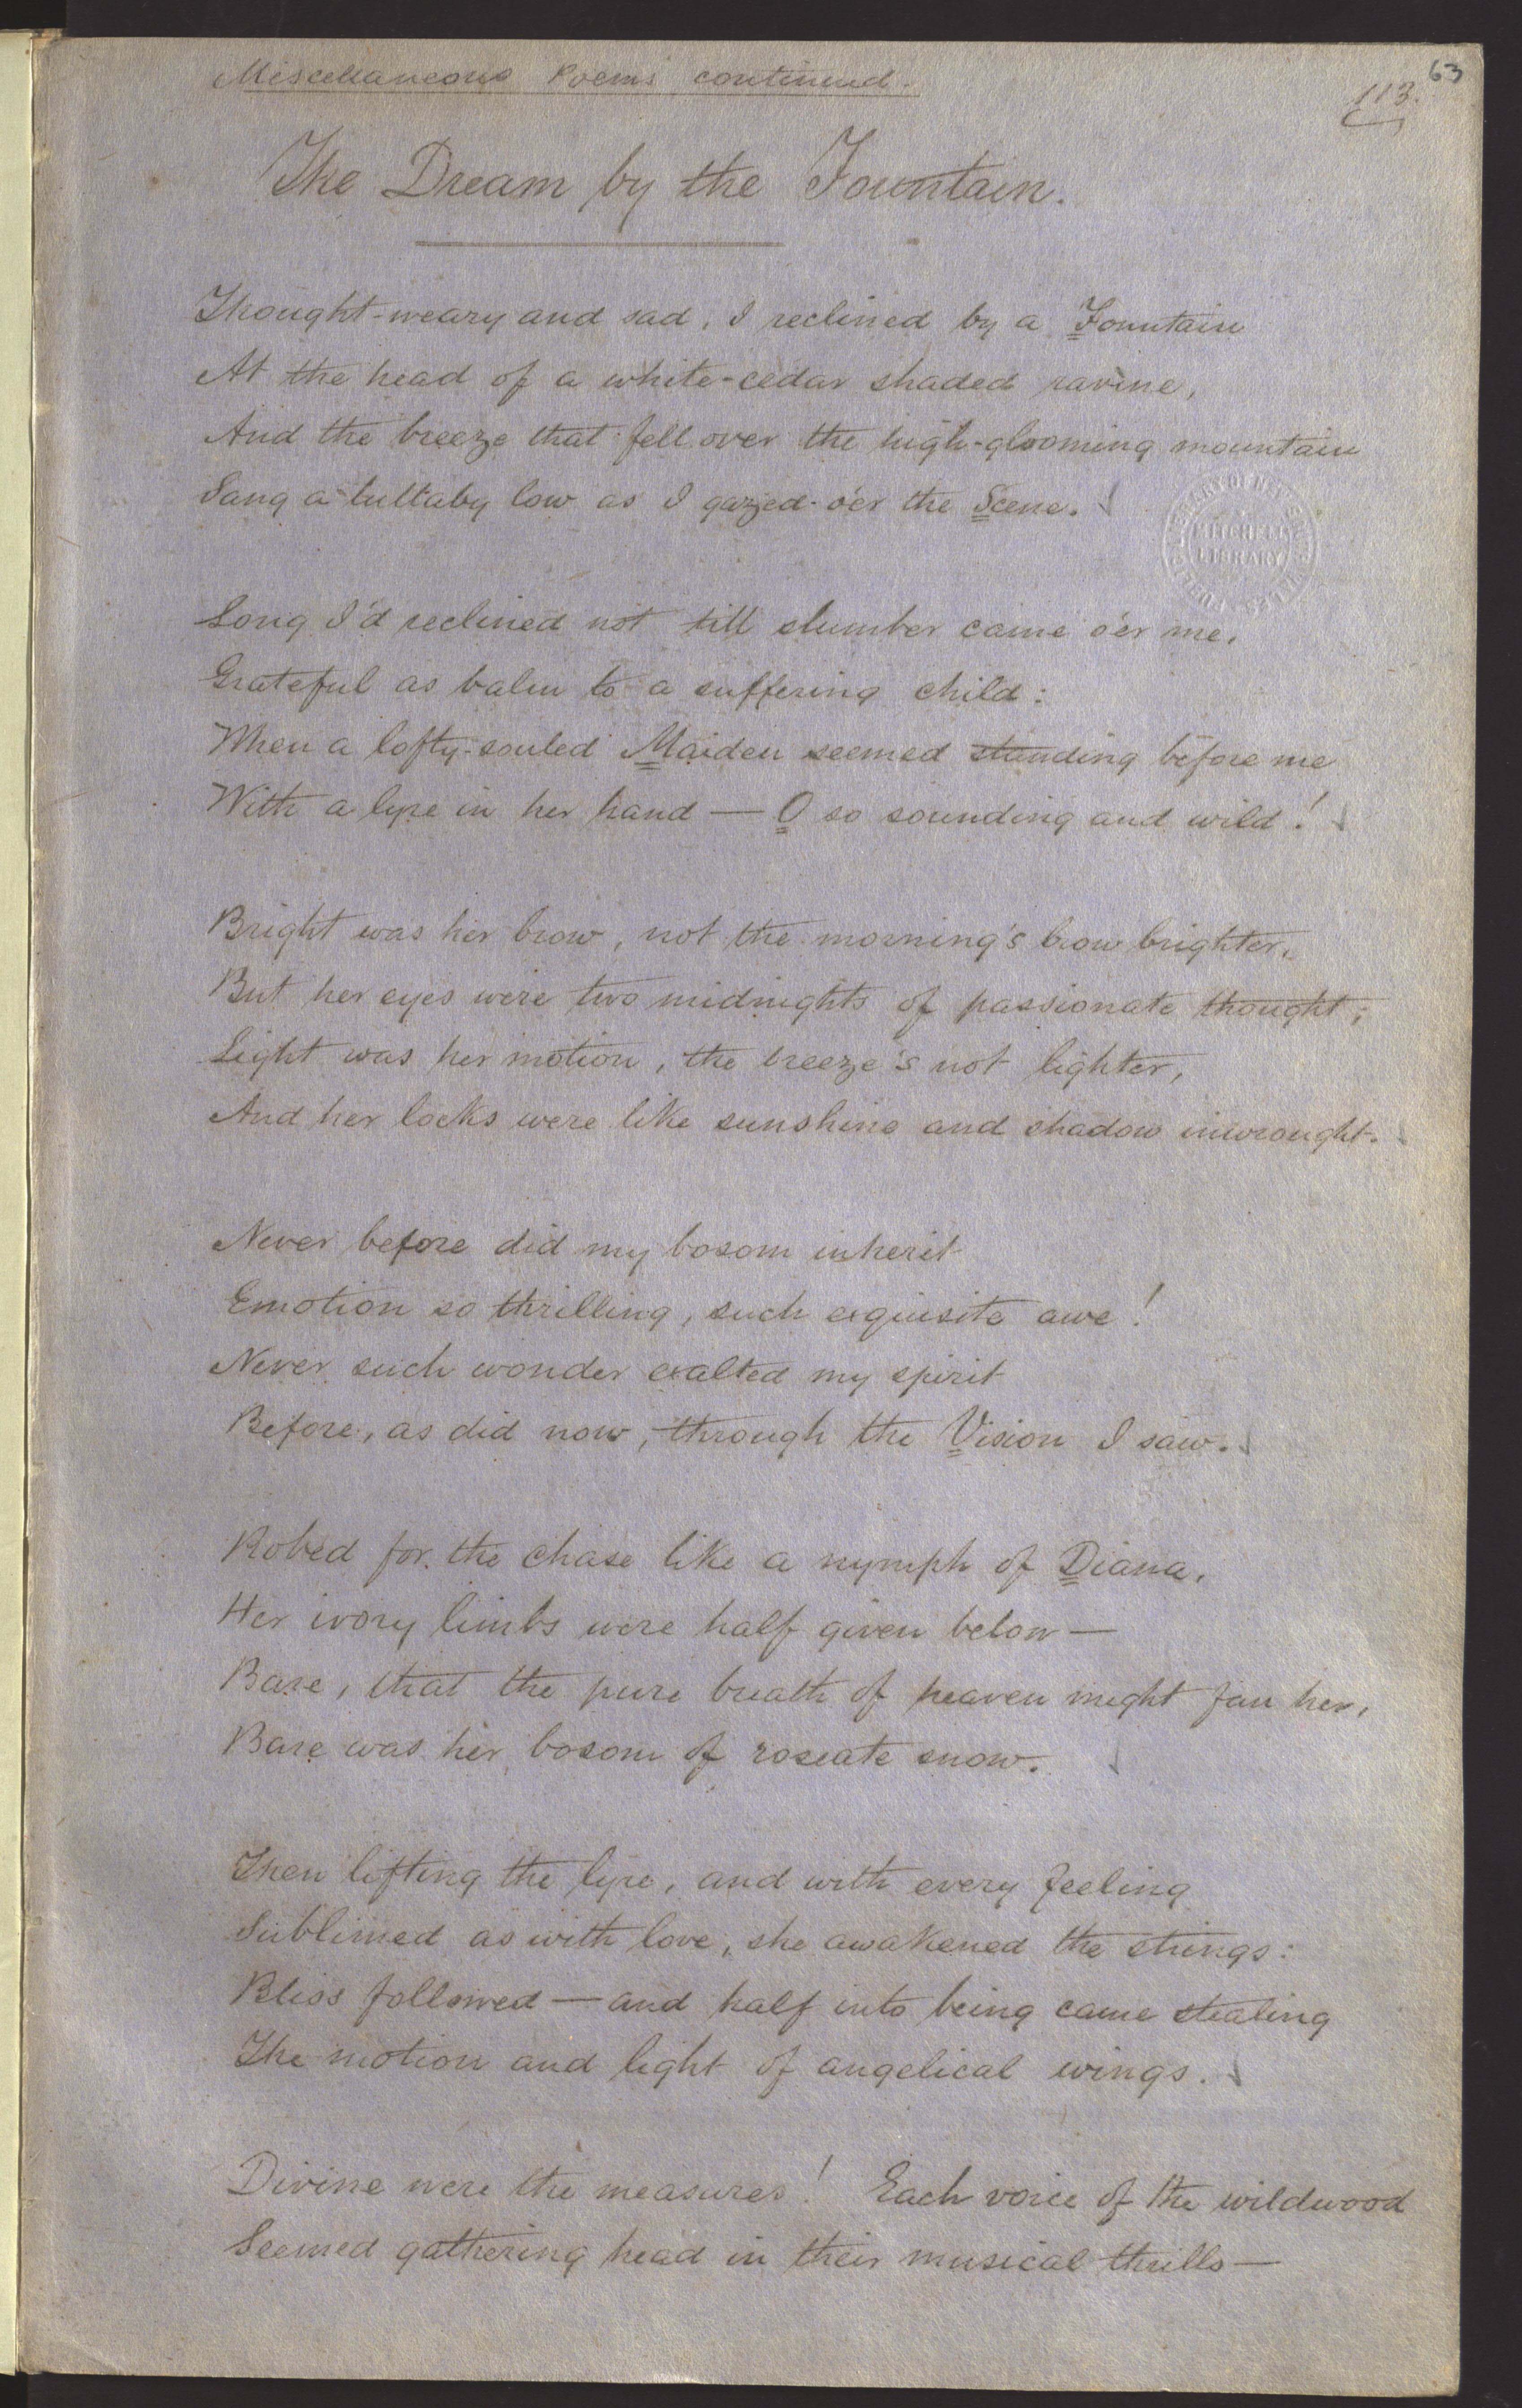 Miscellaneous Poems continued.
63
113.
The Dream by the Fountain.
Thought-weary and sad, I reclined by a Fountain
At the head of a white-cedar shaded ravine,
And the breeze that fell over the high-glooming mountain
Sang a lullaby low as I gazed o'er the Scene.
Long I'd reclined not till slumber came o'er me,
Grateful as balm to a suffering child:
When a lofty-souled Maiden seemed standing before me
With a lyre in her hand — O so sounding and wild!
Bright was her brow, not the morning's brow brighter,
But her eyes were two midnights of passionate thought;
Light was her motion, the breeze's not lighter,
And her locks were like sunshine and shadow inwrought.
Never before did my bosom inherit
Emotion so thrilling, such exquisite awe!
Never such wonder exalted my spirit
Before, as did now, through the Vision I saw.
Robed for the chase like a nymph of Diana,
Her ivory limbs were half given below —
Bare, that the pure breath of heaven might fan her,
Bare was her bosom of roseate snow.
Then lifting the lyre, and with every feeling
Sublimed as with love, she awakened the strings:
Bliss followed — and half into being came stealing
The motion and light of angelical wings.
Divine were the measures! Each voice of the wildwood
Seemed gathering head in their musical thrills —
MITCHELL
LIBRARY